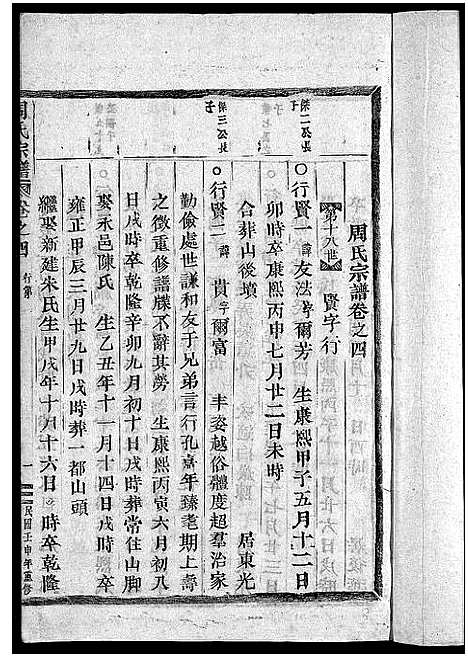 周氏宗譜卷之四
第十八世 賢字行
傑二公長子
○行賢一 諱友法字爾芳 生康熙甲子五月十二日
卯時卒康熙丙申七月廿二日未時
合葬山後墳 居東光
傑三公長子
○行賢二 諱貴字爾富 丰姿越俗體度超羣治家
勤儉處世謙和友于兄弟言行孔嘉年臻耄期上壽
之徵重修譜牒不辭其勞 生康熙丙寅六月初八
日戌時卒乾隆辛卯九月初十日戌時葬常往山脚
娶永邑陳氏 生乙丑年十一月十四日戌時卒
雍正甲辰三月廿九日戌時葬一都山頭
繼娶新建朱氏生甲戌年十月十六日 時卒乾隆
周氏宗譜 卷之四 行第 一 民國壬申年重修